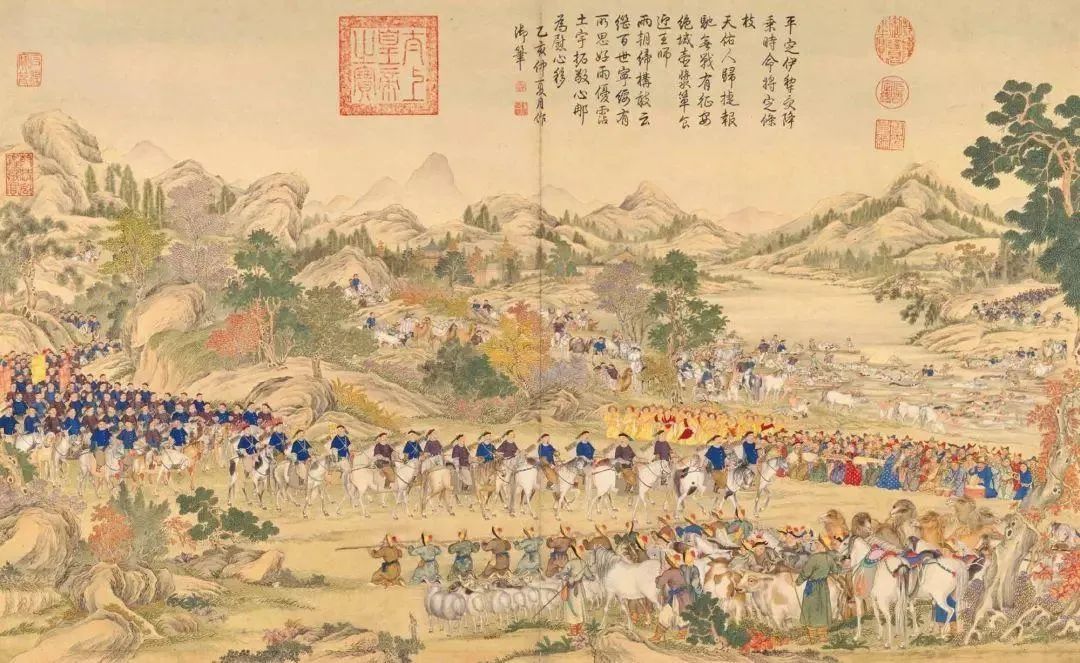 平定伊犁受降
乘時命將定條
枝
天佑人歸捷報
馳無戰有征安
絕域壺漿簞食
迎王師
兩朝締構敢云
繼百世寧綏有
所思好雨優霑
土宇拓敬心那
為慰心移
乙亥仲夏月作
御筆
太上
皇帝
之寶